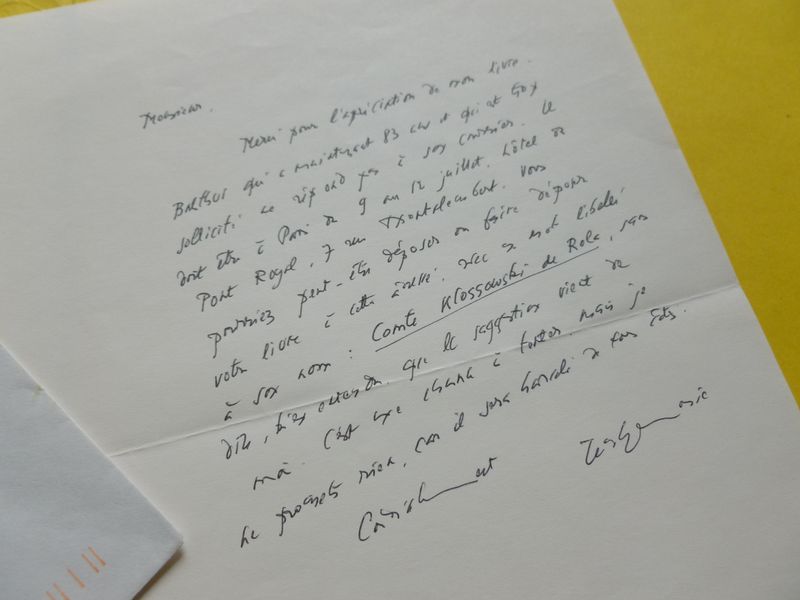 Monsieur,
Merci pour l'appréciation de mon livre.
Balthus qui a maintenant 83 ans et qui est trop
sollicité ne répond pas à son courrier. Il
doit être à Paris du 9 au 12 juillet, hôtel du
Pont Royal, 7 rue Montalembert. Vous
pourriez peut-être déposer ou faire déposer
votre livre à cette adresse, avec un mot libellé
à son nom : Comte Klossowski de Rola, sans
dire, bien entendu, que la suggestion vient de
moi. C'est une chance à tenter, mais je
ne promets rien, car il sera harcelé de tous côtés.
Cordialement